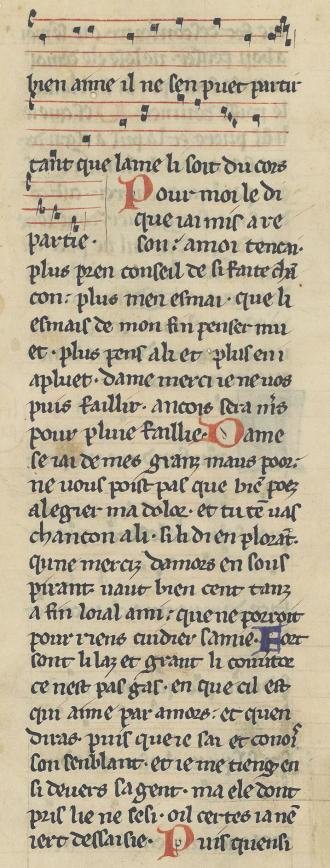 bien aime il ne sen puet partir
tant que lame li soit du cors
partie · Pour moi le di
que iai mis a re
son : amor tencai·
plus pren conseil de si faite chā
con : plus men esmai · que li
esmais de mon fin penser mu
et · plus pens a li et plus en i
apluet · dame merci ie ne vos
puis faillir · ancois sera
pour pluie faillie · Dame
se iai de mes granz maus poor :
ne vous poist pas que biē poez
alegier ma dolor · et tu tē vas
chancon a li · si li di en ploīat·
qune merciz damors en sous
piranz vaut bien cent tanz
a fin loial ami : que ne porroit
pour riens cuidier samie · Fort
sont li laz et grant li
ce nest pas gas · en que cil est
qui aime par amors : et quen
diras · puis que ie sai et
son senblant · et ie me tieng en
si devers sa gent · ma ele dont
pris lie ne sesi · oil certes ia nē
iert dessaisie · Puis quensi